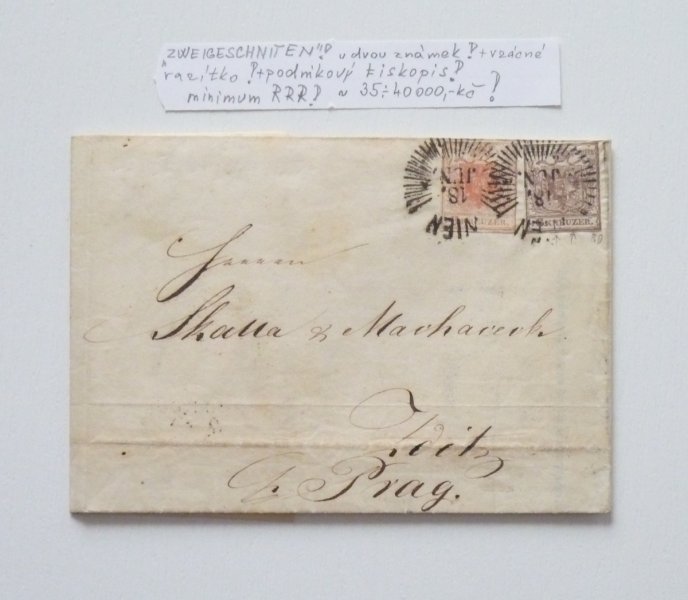 „ZWEIGESCHNITEN"! u dvou známek! + vzácné
razítko! + podnikový tiskopis!
minimum RRR! ~ 35÷40 000,-kč!
18.
JUN.
WIEN
KREUZER.
18.
JUN.
KREUZER.
Herren
Skalla & Machaceck
p. Prag.